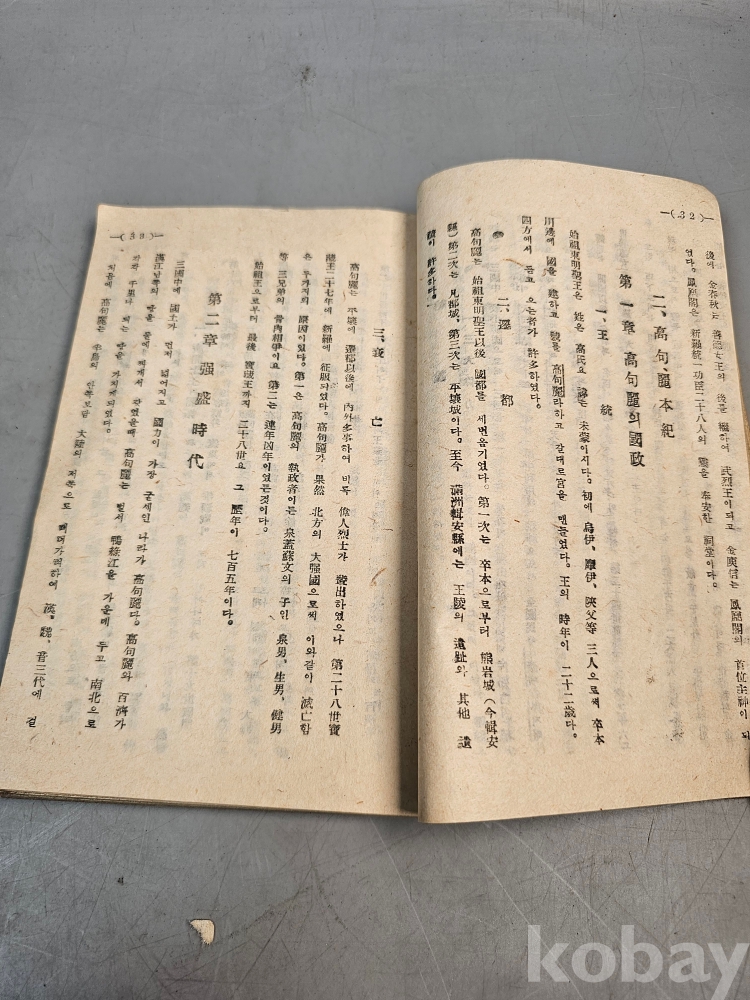 —(32)—
後에 金春秋는 善德女王의 後를 繼하여 武烈王이되고 金庾信는 鳳凰閣의 首位主神이 되
였다。鳳凰閣은 新羅統一功臣二十八人의 靈을 奉安한 祠堂이다。
二、高句麗本紀
第一章 高句麗의國政
一、王統
始祖東明聖王은 姓은 高氏요 諱는 朱蒙이시다。初에 烏伊、摩伊、陜父等 三人으로써 卒本
川邊에 國을 建하고 號를 高句麗라하고 갈대로宮을 맨들었다。王의 時年이 二十二歲다。
四方에서 듣고 오는者가 許多하였다。
二、遷都
高句麗는 始祖東明聖王以後 國都를 세번옴기였다。第一次는 卒本으로부터 熊岩城(今輯安
縣)第二次는 凡都城、第三次는 平壤城이다。至今 滿洲輯安縣에는 王陵의 遺趾와 其他 遺
蹟이 許多하다。
—(33)—
三、衰亡
高句麗는 平壤에 遷都以後에 內外多事하여 비록 偉人烈士가 輩出하였으나 第二十八世寶
藏王二十七年에 新羅에 征服되였다。高句麗가 果然 北方의 大强國으로써 이와같이 滅亡함
은 두가지의 原因이있다。第一은 高句麗의 執政者이든 泉蓋蘇文의 子인 泉男、生男、健男
等 三兄弟의 骨肉相爭이요 第二는 連年凶年이였든것이다。
始祖王으로부터 最後 寶藏王까지 二十八世요 그 歷年이 七百五年이다。
第二章 强盛時代
三國中에 國土가 먼저 넓어지고 國力이 가장 굳세인 나라가 高句麗다。高句麗와 百濟가
漢江남쪽의 땅을 둘에 제게서 갈였을때、高句麗는 벌서 鴨綠江을 가운데 두고 南北으로
각각 千里나 되는 땅을 가지게되였다。
처음에 高句麗는 半島의 안쪽보담 大陸의 저쪽으로 뻐더가려하여 漢、魏、晋三代에 걸
kobay